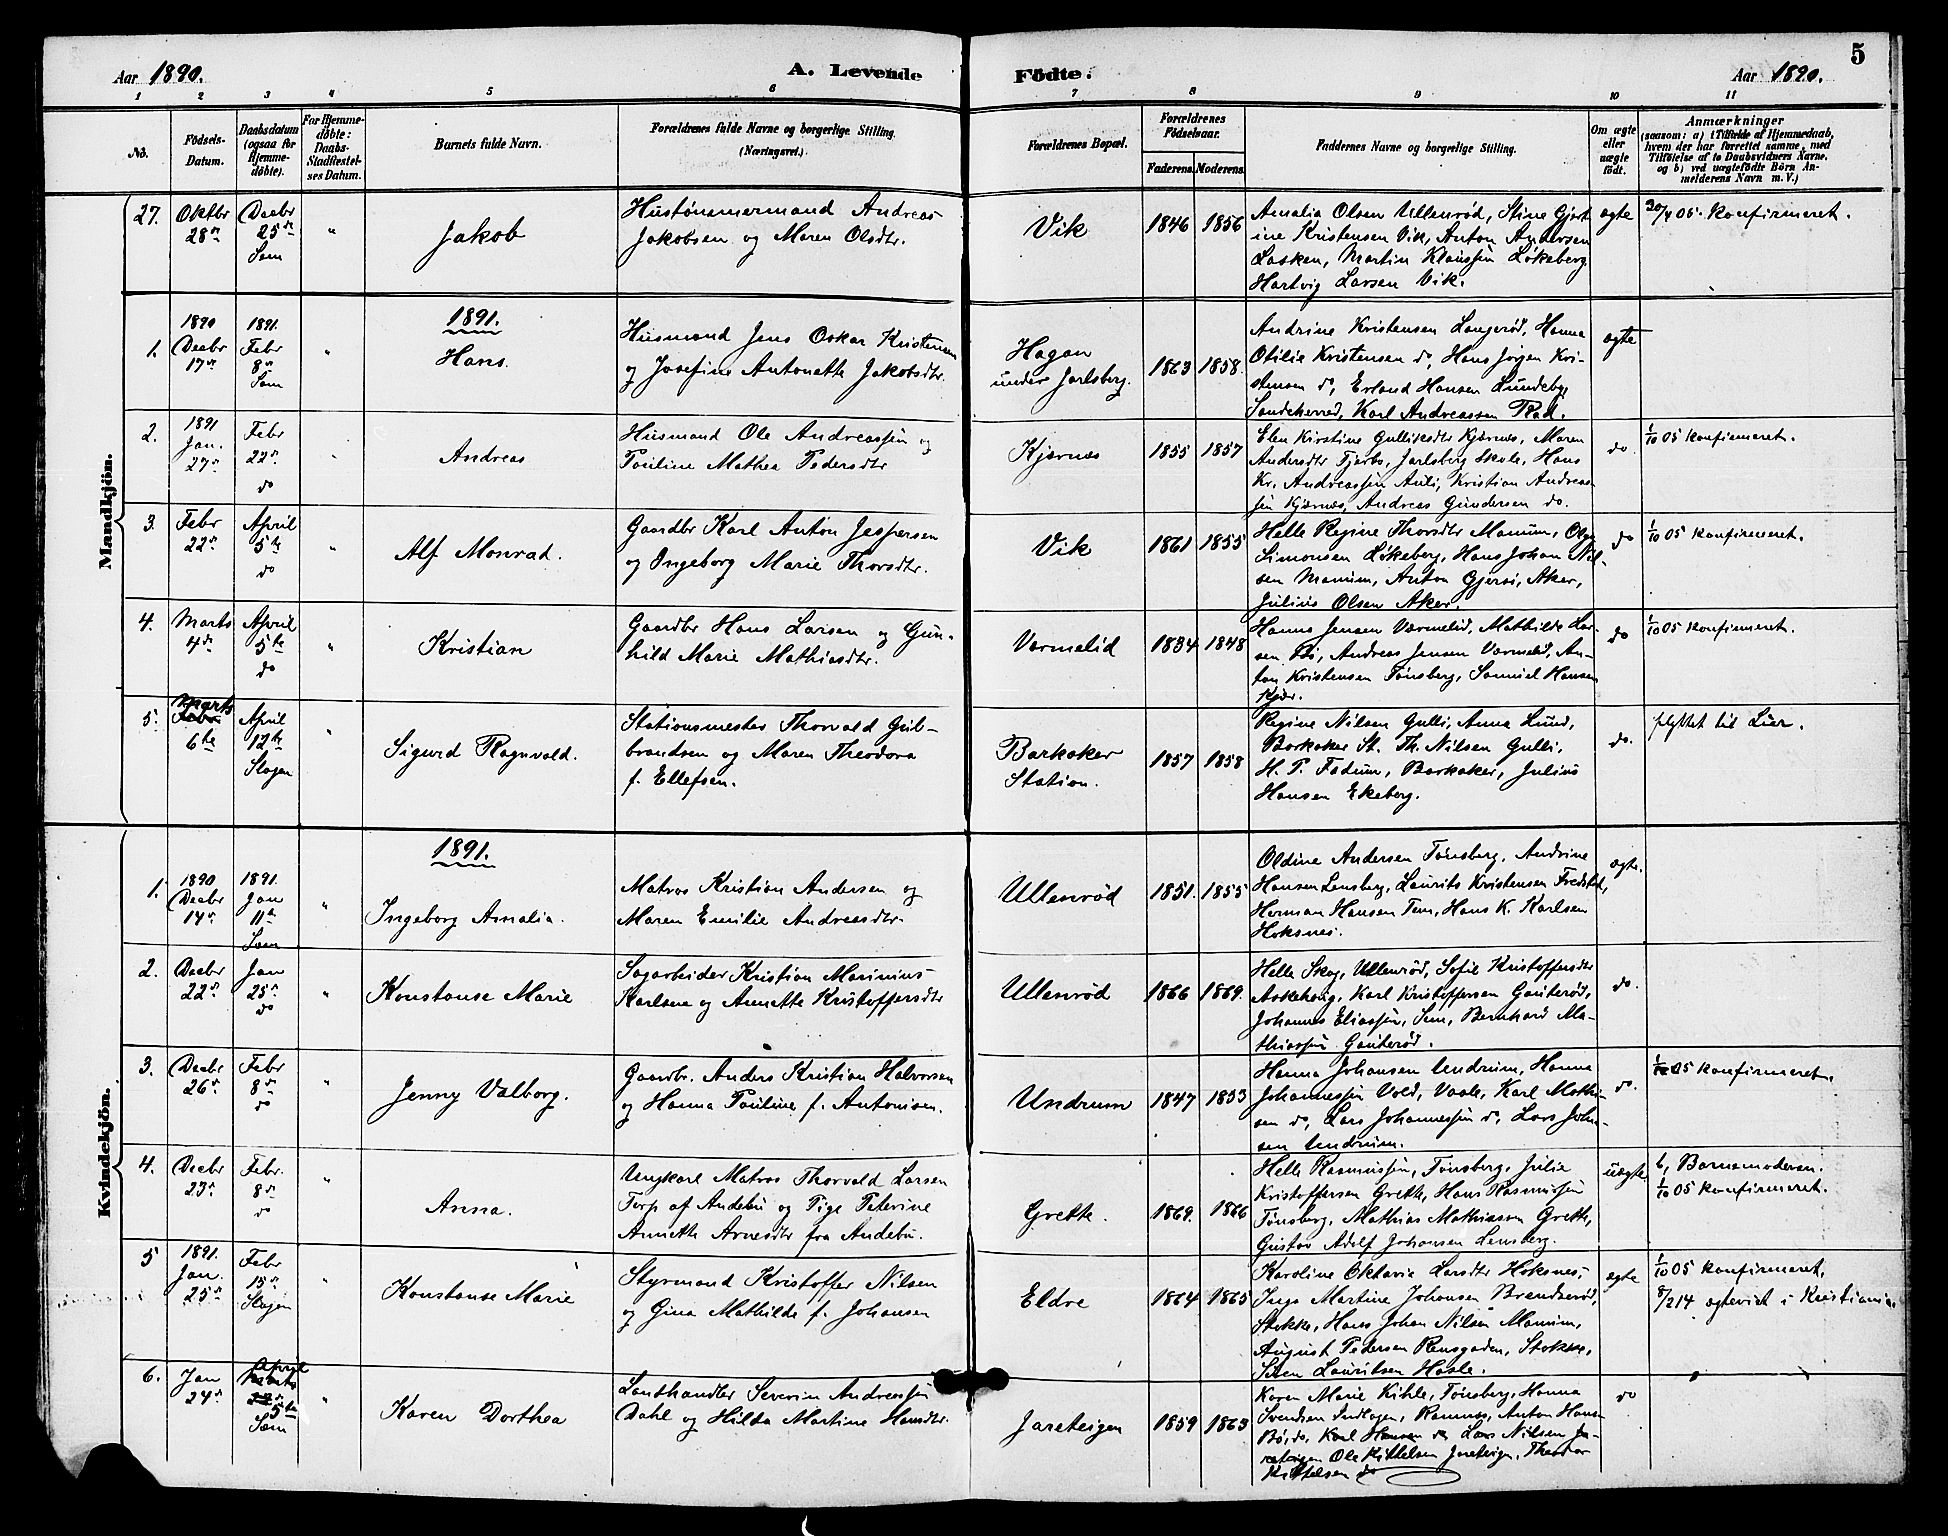 5
Aar 1890.
A. Levende Födte.
Aar 1890.
1 2 3 4 5 6 7 8 9 10 11
No.
Födsels-Datum.
Daabsdatum (ogsaa for Hjemme-döbte).
For Hjemme-döbte: Daabs-Stadfæstel-ses Datum.
Barnets fulde Navn.
Forældrenes fulde Navne og borgerlige Stilling. (Næringsvei.)
Forældrenes Bopæl.
Forældrenes Födselsaar.
Faderens. Moderens.
Faddernes Navne og borgerlige Stilling.
Om ægte eller uægte födt.
Anmærkninger
(saasom: a) i Tilfælde af Hjemmedaab,
hvem der har forrettet samme, med
Tilföielse af to Daabsvidners Navne,
og b) ved uægtefödte Börn An-
melderens Navn m. V.)
Mandkjön.
27. Oktbr 28de
Decbr 25de Sem
"
Jakob
Hustømmermand Andreas
Jakobsen og Maren Olsdtr.
Vik
1846 1856
Amalia Olsen Ullenrød, Stine Gjert
ine Kristensen Vik, Anton Andersen
Lasken, Martin Klaussen Løkeberg
Hartvig Larsen Vik.
ægte
30/4 05. konfirmeret.
1891.
1. 1890 Decbr 17de
1891. Febr 8de Sem
"
Hans.
Husmand Jens Oskar Kristensen
og Josefine Antonette Jakobsdtr.
Hagan
under Jarlsberg.
1863 1858.
Andrine Kristensen Langerød, Hanna
Otilie Kristensen do, Hans Jørgen Kri-
stensen do, Erland Hansen Lundeby
Sandeherred, Karl Andreassen Rad.
ægte
2. 1891 Jan. 27de
Febr 22de do
Andreas
Husmand Ole Andreassen og
Pauline Mathea Pedersdtr
Kjærnes
1855 1857
Elen Kirstine Gulliksdtr Kjærnes, Maren
Andersdtr Tjerbo, Jarlsberg Skole, Hans
Kr. Andreassen Auli, Kristian Andreas-
sen Kjærnes, Andreas Gundersen do.
do
1/10 05 konfirmeret.
3. Febr 22de
April 5te do
"
Alf Monrad.
Gaardbr Karl Anton Jespersen
og Ingeborg Marie Thorsdtr.
Vik
1861 1855
Helle Regine Thorsdtr Manum, Olga
Simonsen Løkeberg, Hans Johan Nil-
sen Manum, Anton Gjersø, Aker,
Julius Olsen Aker.
do
1/10 05 konfirmeret.
4. Marts 4de
April 5te do
"
Kristian
Gaardbr Hans Larsen og Gun-
hild Marie Mathiasdtr.
Varmelid
1834 1848
Hanna Jensen Værmelid, Mathilde Lar-
sen Bø, Andreas Jensen Varmelid, An-
ton Kristensen Tønsberg, Samuel Hansen
Kjær.
do
1/10 05 konfirmeret.
5. Marts Febr 6te
April 12te Slagen
"
Sigurd Ragnvald.
Stationsmester Thorvald Gul-
brandsen og Maren Theodora
f. Ellefsen.
Barkaker
Station.
1857 1858
Regine Nilsen Gulli, Anna Lund,
Barkaker St. Th. Nilsen Gulli,
H. P. Fadum, Barkaker, Julius
Hansen Ekeberg.
do.
flyttet til Lier.
Kvindekjön.
1891.
1. 1890 Decbr 14de
1891. Jan 11te Sem
"
Ingeborg Amalia.
Matros Kristian Andersen og
Maren Emilie Andreasdtr.
Ullenrød
1851. 1855
Oldine Andersen Tønsberg, Andrine
Hansen Lensberg, Laurits Kristensen Fredstad,
Herman Hansen Tem, Hans K. Karlsen
Hoksnes.
ægte.
2. Decbr 22de
Jan 25de do
"
Konstanse Marie
Sagarbeider Kristian Marinius
Karlsen og Annette Kristoffersdtr
Ullenrød
1866 1869.
Helle Skog, Ullenrød, Sofie Kristoffersdtr
Askehaug, Karl Kristoffersen Gauterød,
Johannes Eliassen, Sem, Bernhard Ma-
thiassen Gauterød.
do.
3. Decbr 26de
Febr 8de do
"
Jenny Valborg.
Gaardbr. Anders Kristian Halvorsen
og Hanna Pauline f. Antonisen.
Undrum
1847 1853
Hanna Johansen Undrum, Hanna
Johannessen Vold, Vaale, Karl Mathi-
sen do, Lars Johannessen do, Lars Johan-
sen Undrum.
do.
1/10 05 konfirmeret.
4. Decbr 23de
Febr. 8de do
"
Anna.
Ungkarl Matros Thorvald Larsen
Torp af Andebu og Pige Peterine
Annette Arnesdtr fra Andebu.
Grette.
1869. 1866
Helle Rasmussen, Tønsberg, Julie
Kristoffersen Grette, Hans Rasmussen
Tønsberg, Mathias Mathiassen Grette,
Gustav Adolf Johansen Lensberg.
uægte
b, Barnemoderen.
1/10 05 konfirmeret.
5 1891. Jan. 25de
Febr 15de Slagen
"
Konstanse Marie
Styrmand Kristoffer Nilsen
og Gina Mathilde f. Johansen
Eldre
1864 1865
Karoline Oktavia Larsdtr Hoksnes,
Inga Martine Johansen Brendsrød,
Stokke, Hans Johan Nilsen Manum,
August Pedersen Rensgaden, Stokke,
Sten Lauritsen Hasle.
ægte
1/10 05 konfirmeret.
8/2 14 ægteviet i Kristiania.
6. Jan 24de
April Marts 22de 5te Sem
"
Karen Dorthea
Landhandler Severin Andreassen
Dahl og Hilda Martine Hansdtr.
Jareteigen
1859 1863
Karen Marie Kihle, Tønsberg, Hanna
Svendsen Indlagen, Ramnes, Anton Hansen
Bø, do, Karl Hansen do, Lars Nilsen Ja-
reteigen Ole Kittelsen Jareteigen, Theodor
Kittelsen do
do